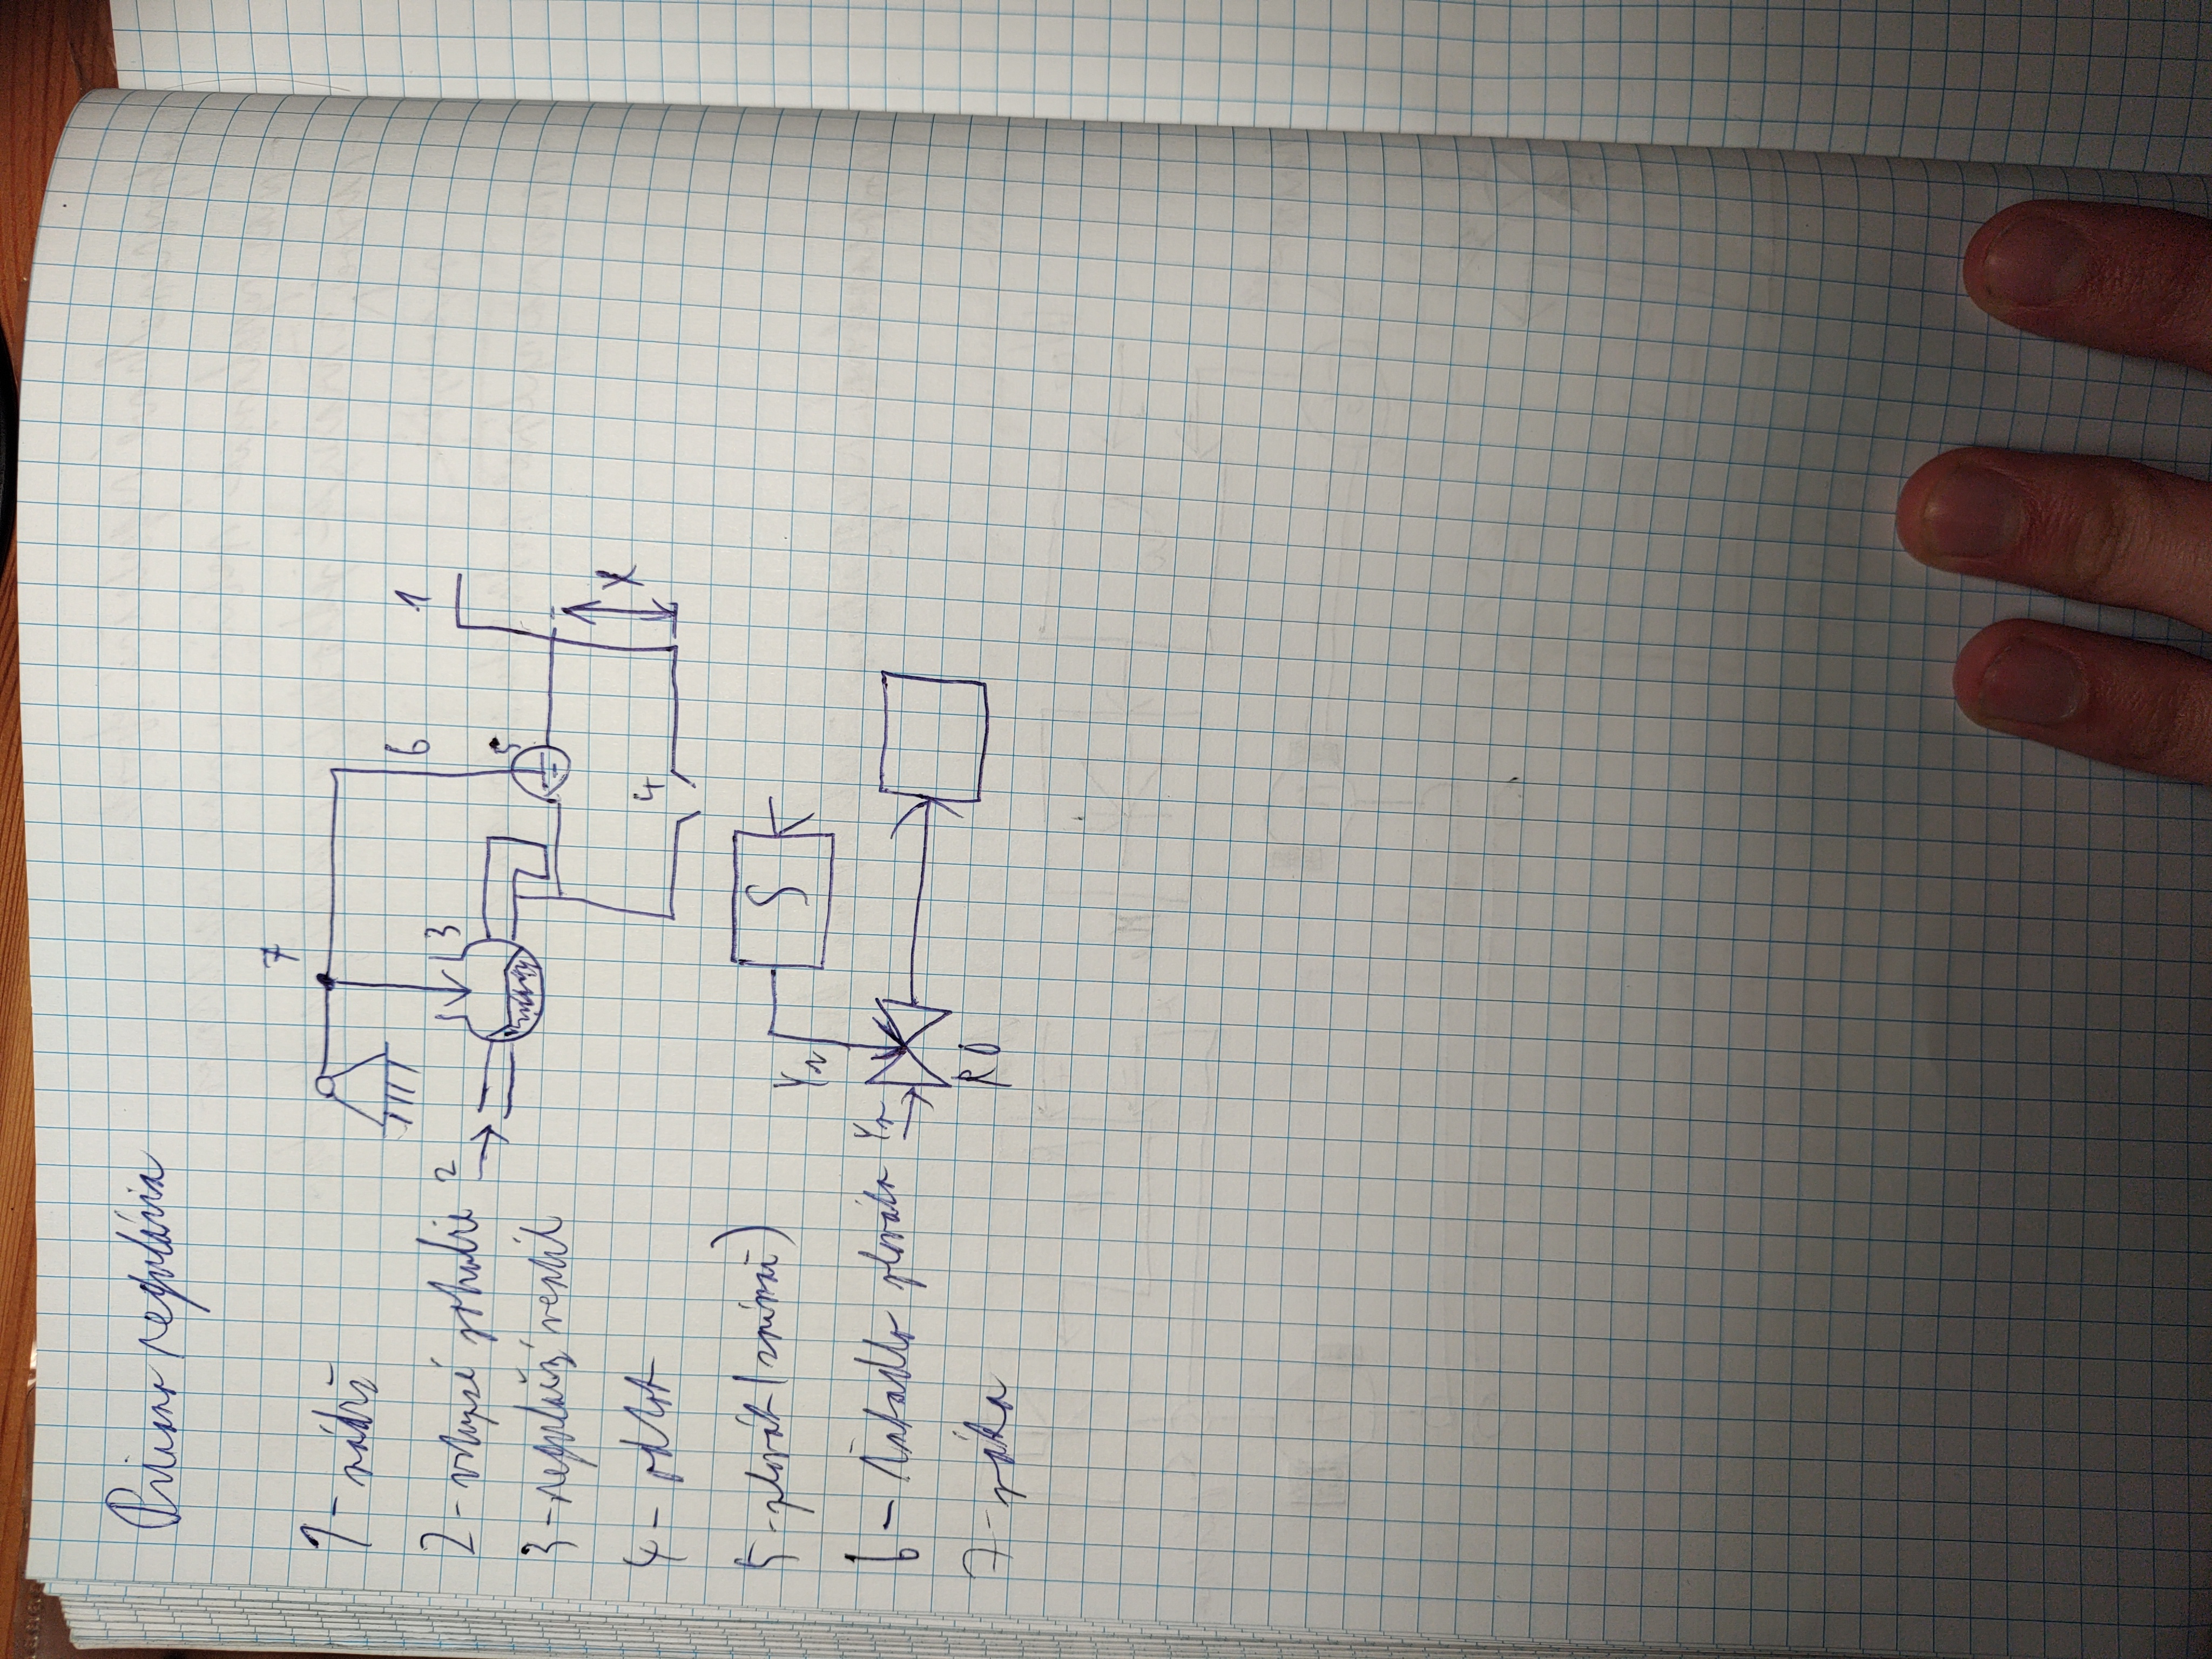 Priama regulácia
1 - nádrž
2 - vstupné potrubie
3 - regulačný ventil
4 - odtok
5 - plovák (snímač)
6 - tiahadlo plováka
7 - páka
7
6
1
3
5
2
4
X
S
Yr
RO